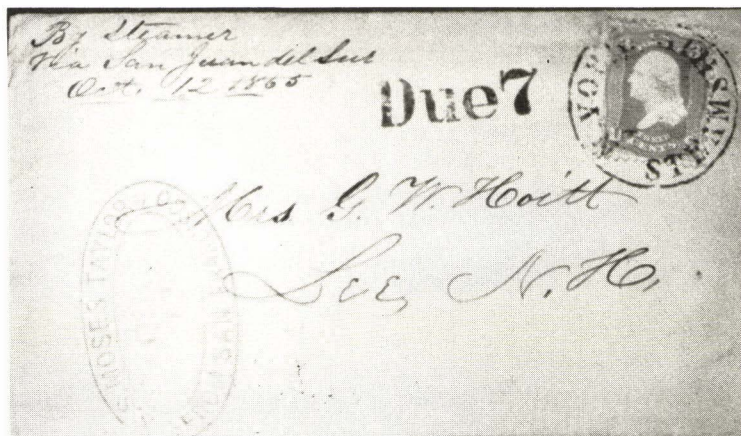 By Steamer
Via San Juan del Sur
Oct. 12 1865
Due 7
STEAMSHIP
Mrs G. W. Hoitt
Lee, N. H.
MOSES TAYLOR